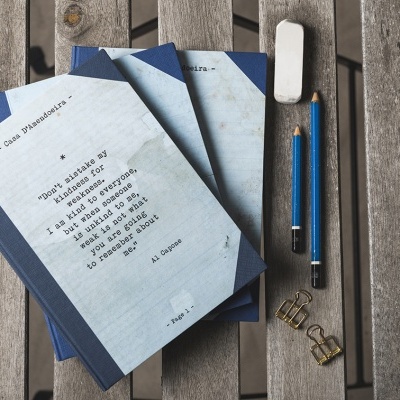 Casa D'Amendoeira -
*
"Don't mistake my
kindness for
weakness.
I am kind to everyone,
but when someone
is unkind to me,
weak is not what
you are going
to remember about
me."
Al Capone
- Page 1 -
oeira -